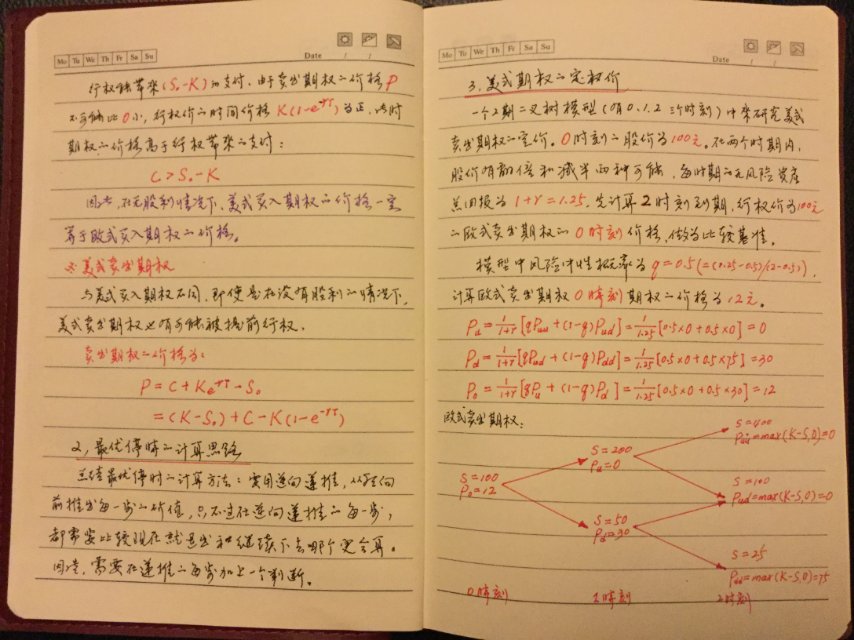 Mo Tu We Th Fr Sa Su
Date / /
行权能带来(S₀-K)的支付。由于卖出期权的价格P
不可能比0小，行权价的时间价格K(1-e^-rT)为正，此时
期权的价格高于行权带来的支付：
C > S₀-K
因此，在无股利情况下，美式买入期权的价格一定
等于欧式买入期权的价格。
美式卖出期权
与美式买入期权不同，即使是在没有股利的情况下，
美式卖出期权也有可能被提前行权。
卖出期权的价格为：
P = C + Ke^-rT - S₀
= (K-S₀) + C - K(1-e^-rT)
2、最优停时的计算思路
总结最优停时的计算方法：实用逆向递推，从后向
前推出每一步的价值，只不过在逆向递推的每一步，
都需要比较现在就退出和继续下去哪个更合算。
因此，需要在递推的每步加上一个判断。
Mo Tu We Th Fr Sa Su
Date / /
3、美式期权的定价
一个2期二叉树模型(有0.1.2三个时刻)中来研究美式
卖出期权的定价。0时刻的股价为100元。在两个时期内，
股价有翻倍和减半两种可能，每时期的无风险资产
总回报为1+r=1.25，先计算2时刻到期，行权价为100元
的欧式卖出期权的0时刻价格，做为比较基准。
模型中风险中性概率为q=0.5(=(1.25-0.5)/(2-0.5))，
计算欧式卖出期权0时刻期权的价格为12元。
Pu = 1/1+r [qPuu + (1-q)Pud] = 1/1.25 [0.5×0 + 0.5×0] = 0
Pd = 1/1+r [qPud + (1-q)Pdd] = 1/1.25 [0.5×0 + 0.5×75] = 30
P₀ = 1/1+r [qPu + (1-q)Pd] = 1/1.25 [0.5×0 + 0.5×30] = 12
欧式卖出期权：
S=400
Puu=max(K-S,0)=0
S=200
Pu=0
S=100
P₀=12
S=100
Pud=max(K-S,0)=0
S=50
Pd=30
S=25
Pdd=max(K-S,0)=75
0时刻 1时刻 2时刻